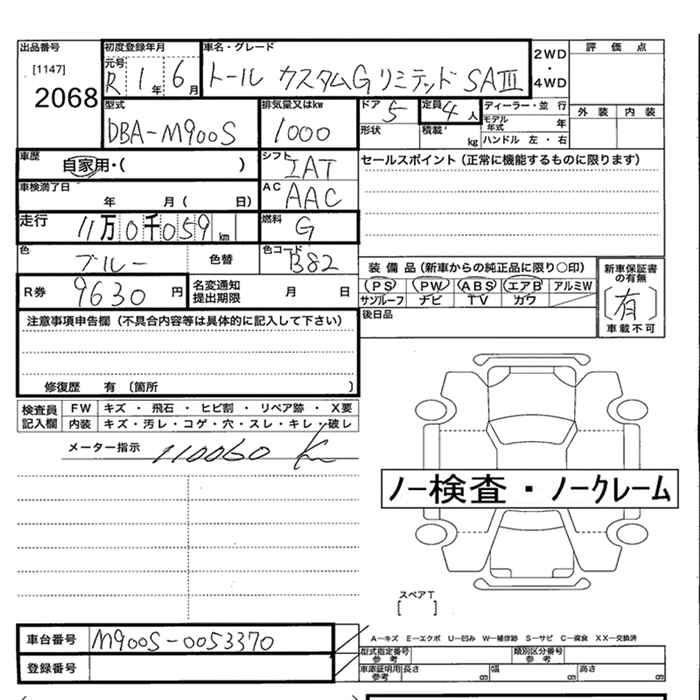 出品番号 初度登録年月 車名・グレード 2WD・4WD 評価点
[1147] 元号 R 1年 6月 トール カスタムG リミテッド SAⅢ
2068
型式 排気量又はkw ドア 5 定員 4人 ディーラー・並行 外装 内装
DBA-M900S 1000 形状 積載 kg モデル年式 年
ハンドル 左・右
車歴 自家用・( ) シフト IAT セールスポイント(正常に機能するものに限ります)
車検満了日 年 月( 日) AC AAC
走行 11万0千059km 燃料 G
色 ブルー 色替 色コード B82 装備品(新車からの純正品に限り○印) 新車保証書の有無
R券 9630円 名変通知提出期限 月 日 PS PW ABS エアB アルミW [有]
サンルーフ ナビ TV カワ 車載不可
注意事項申告欄(不具合内容等は具体的に記入して下さい) 後日品
修復歴 有(箇所 )
検査員記入欄 FW キズ・飛石・ヒビ割・リペア跡・X要
内装 キズ・汚レ・コゲ・穴・スレ・キレ・破レ
メーター指示 110060 Km
ノー検査・ノークレーム
スペアT
[ ]
車台番号 M900S-0053370 A―キズ E―エクボ U―凹み W―補修跡 S―サビ C―腐食 XX―交換済
型式指定番号 参考 類別区分番号 参考
登録番号 車庫証明用参考 長さ cm 幅 cm 高さ cm